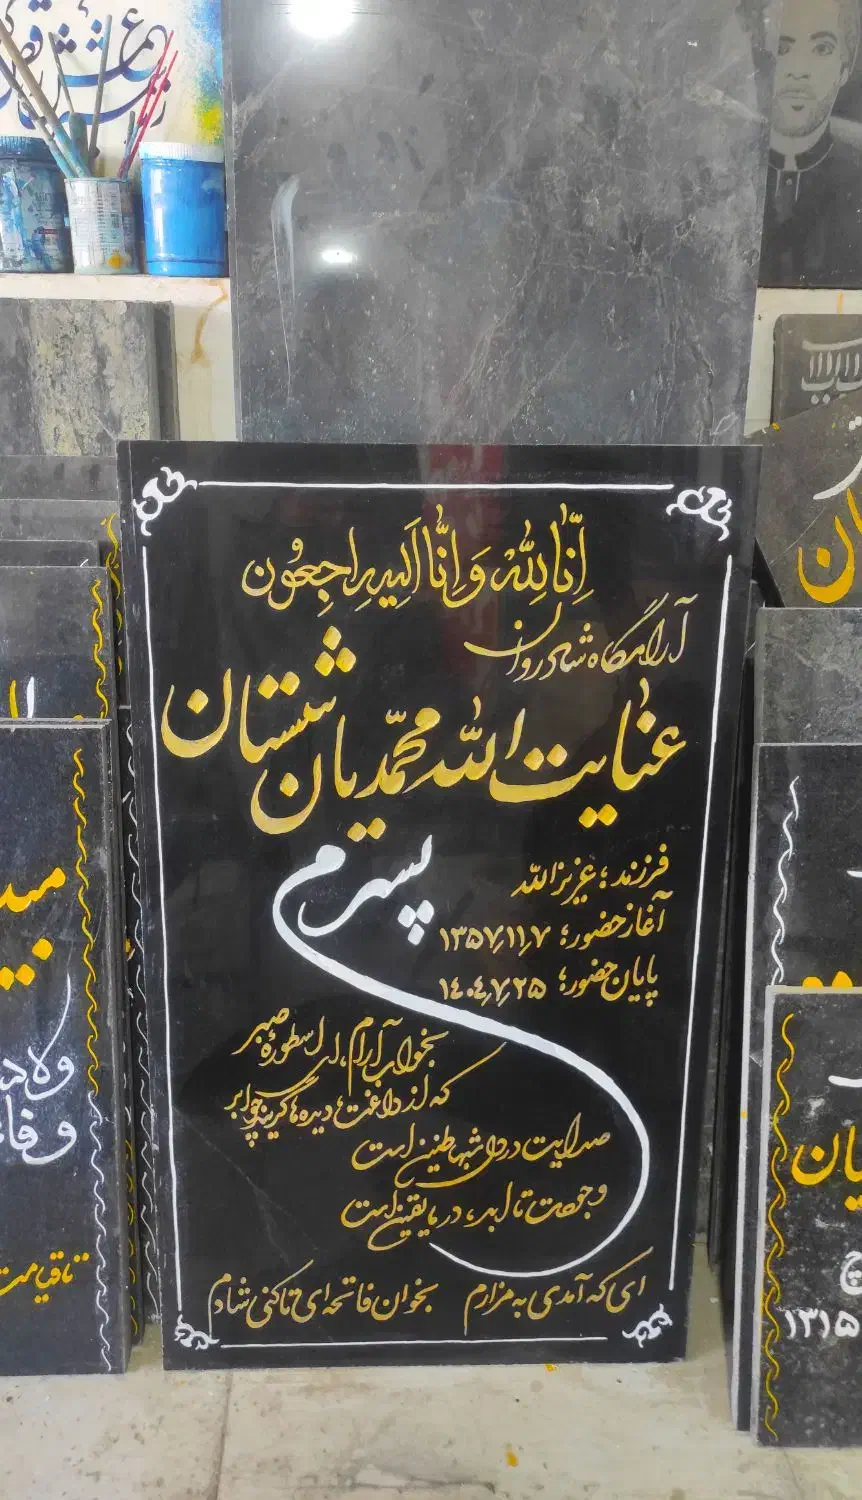 اِنّا لِلّهِ وَ اِنّا اَلِیهِ راجِعُون
آرامگاه شادروان
عنایت الله محمّدیان شستان
پسرم
فرزند؛ عزیزالله
آغاز حضور؛ ۱۳۵۷٫۱۱٫۷
پایان حضور؛ ۱۴۰۴٫۷٫۲۵
بخواب آرام، ای اسطورهٔ صبر
که از داغت دیده‌ها گریند چو ابر
صدایت در دل شبها طنین است
وجودت تا ابد، در ما یقین است
ای که آمدی به مزارم بخوان فاتحه ای تا کنی شادم
تا قیامت
۱۳۱۵